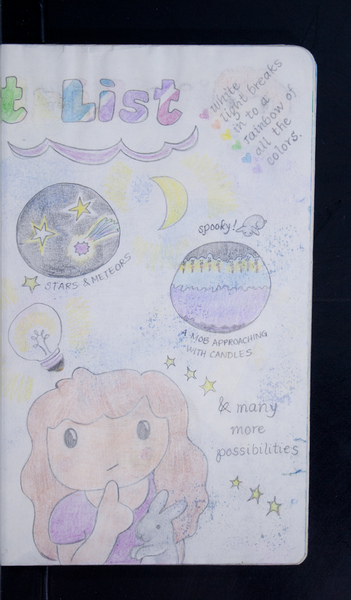 t List
White
light breaks
in to a
rainbow of
all the
colors.
spooky!
STARS & METEORS
A MOB APPROACHING
WITH CANDLES
& many
more
possibilities